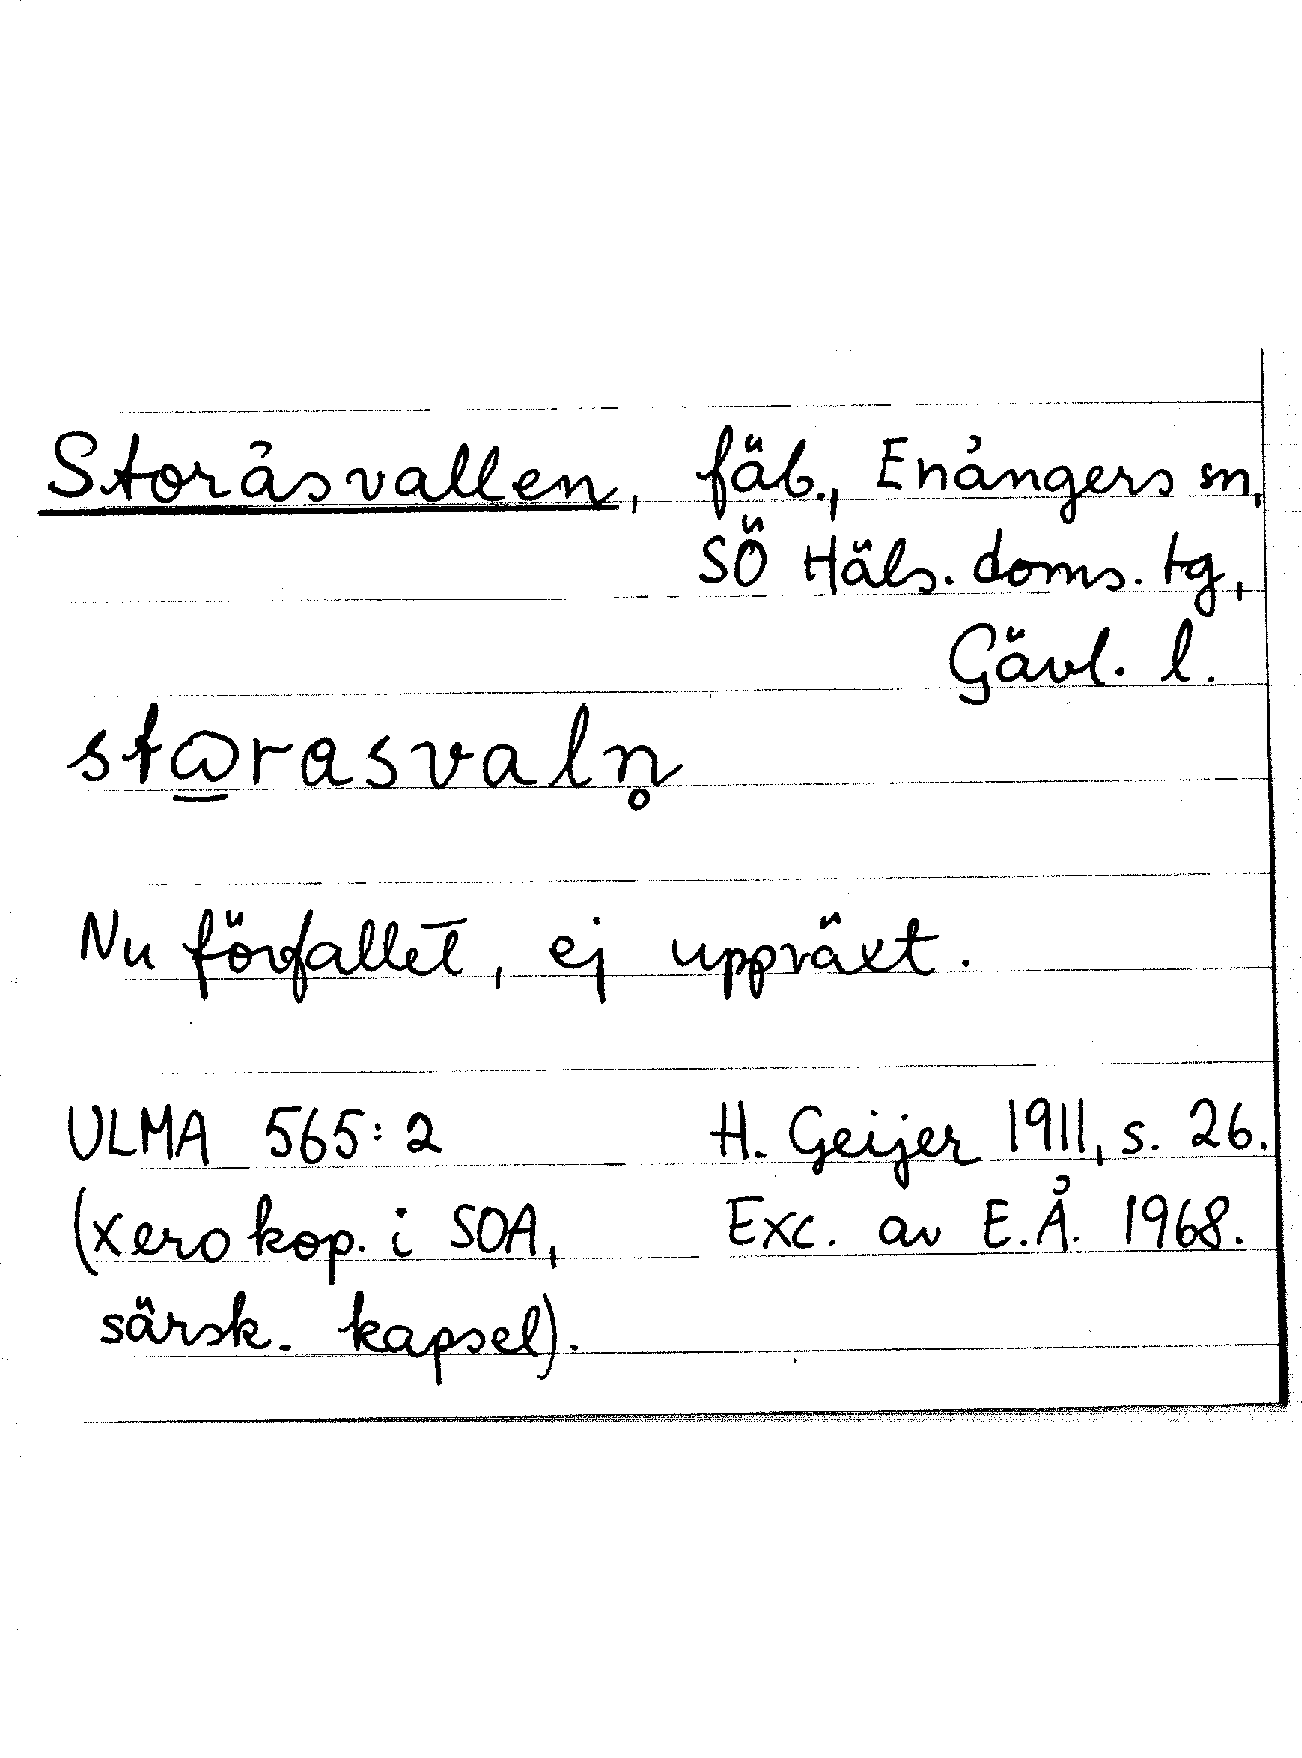 Storåsvallen, fäb., Enångers sn,
SÖ Häls. doms. tg,
Gävl. l.
stꞷ̲rasvaln̥
Nu förfallet, ej uppväxt.
ULMA 565:2 H. Geijer 1911, s. 26.
(xerokop. i SOA, Exc. av E.Å. 1968.
särsk. kapsel).